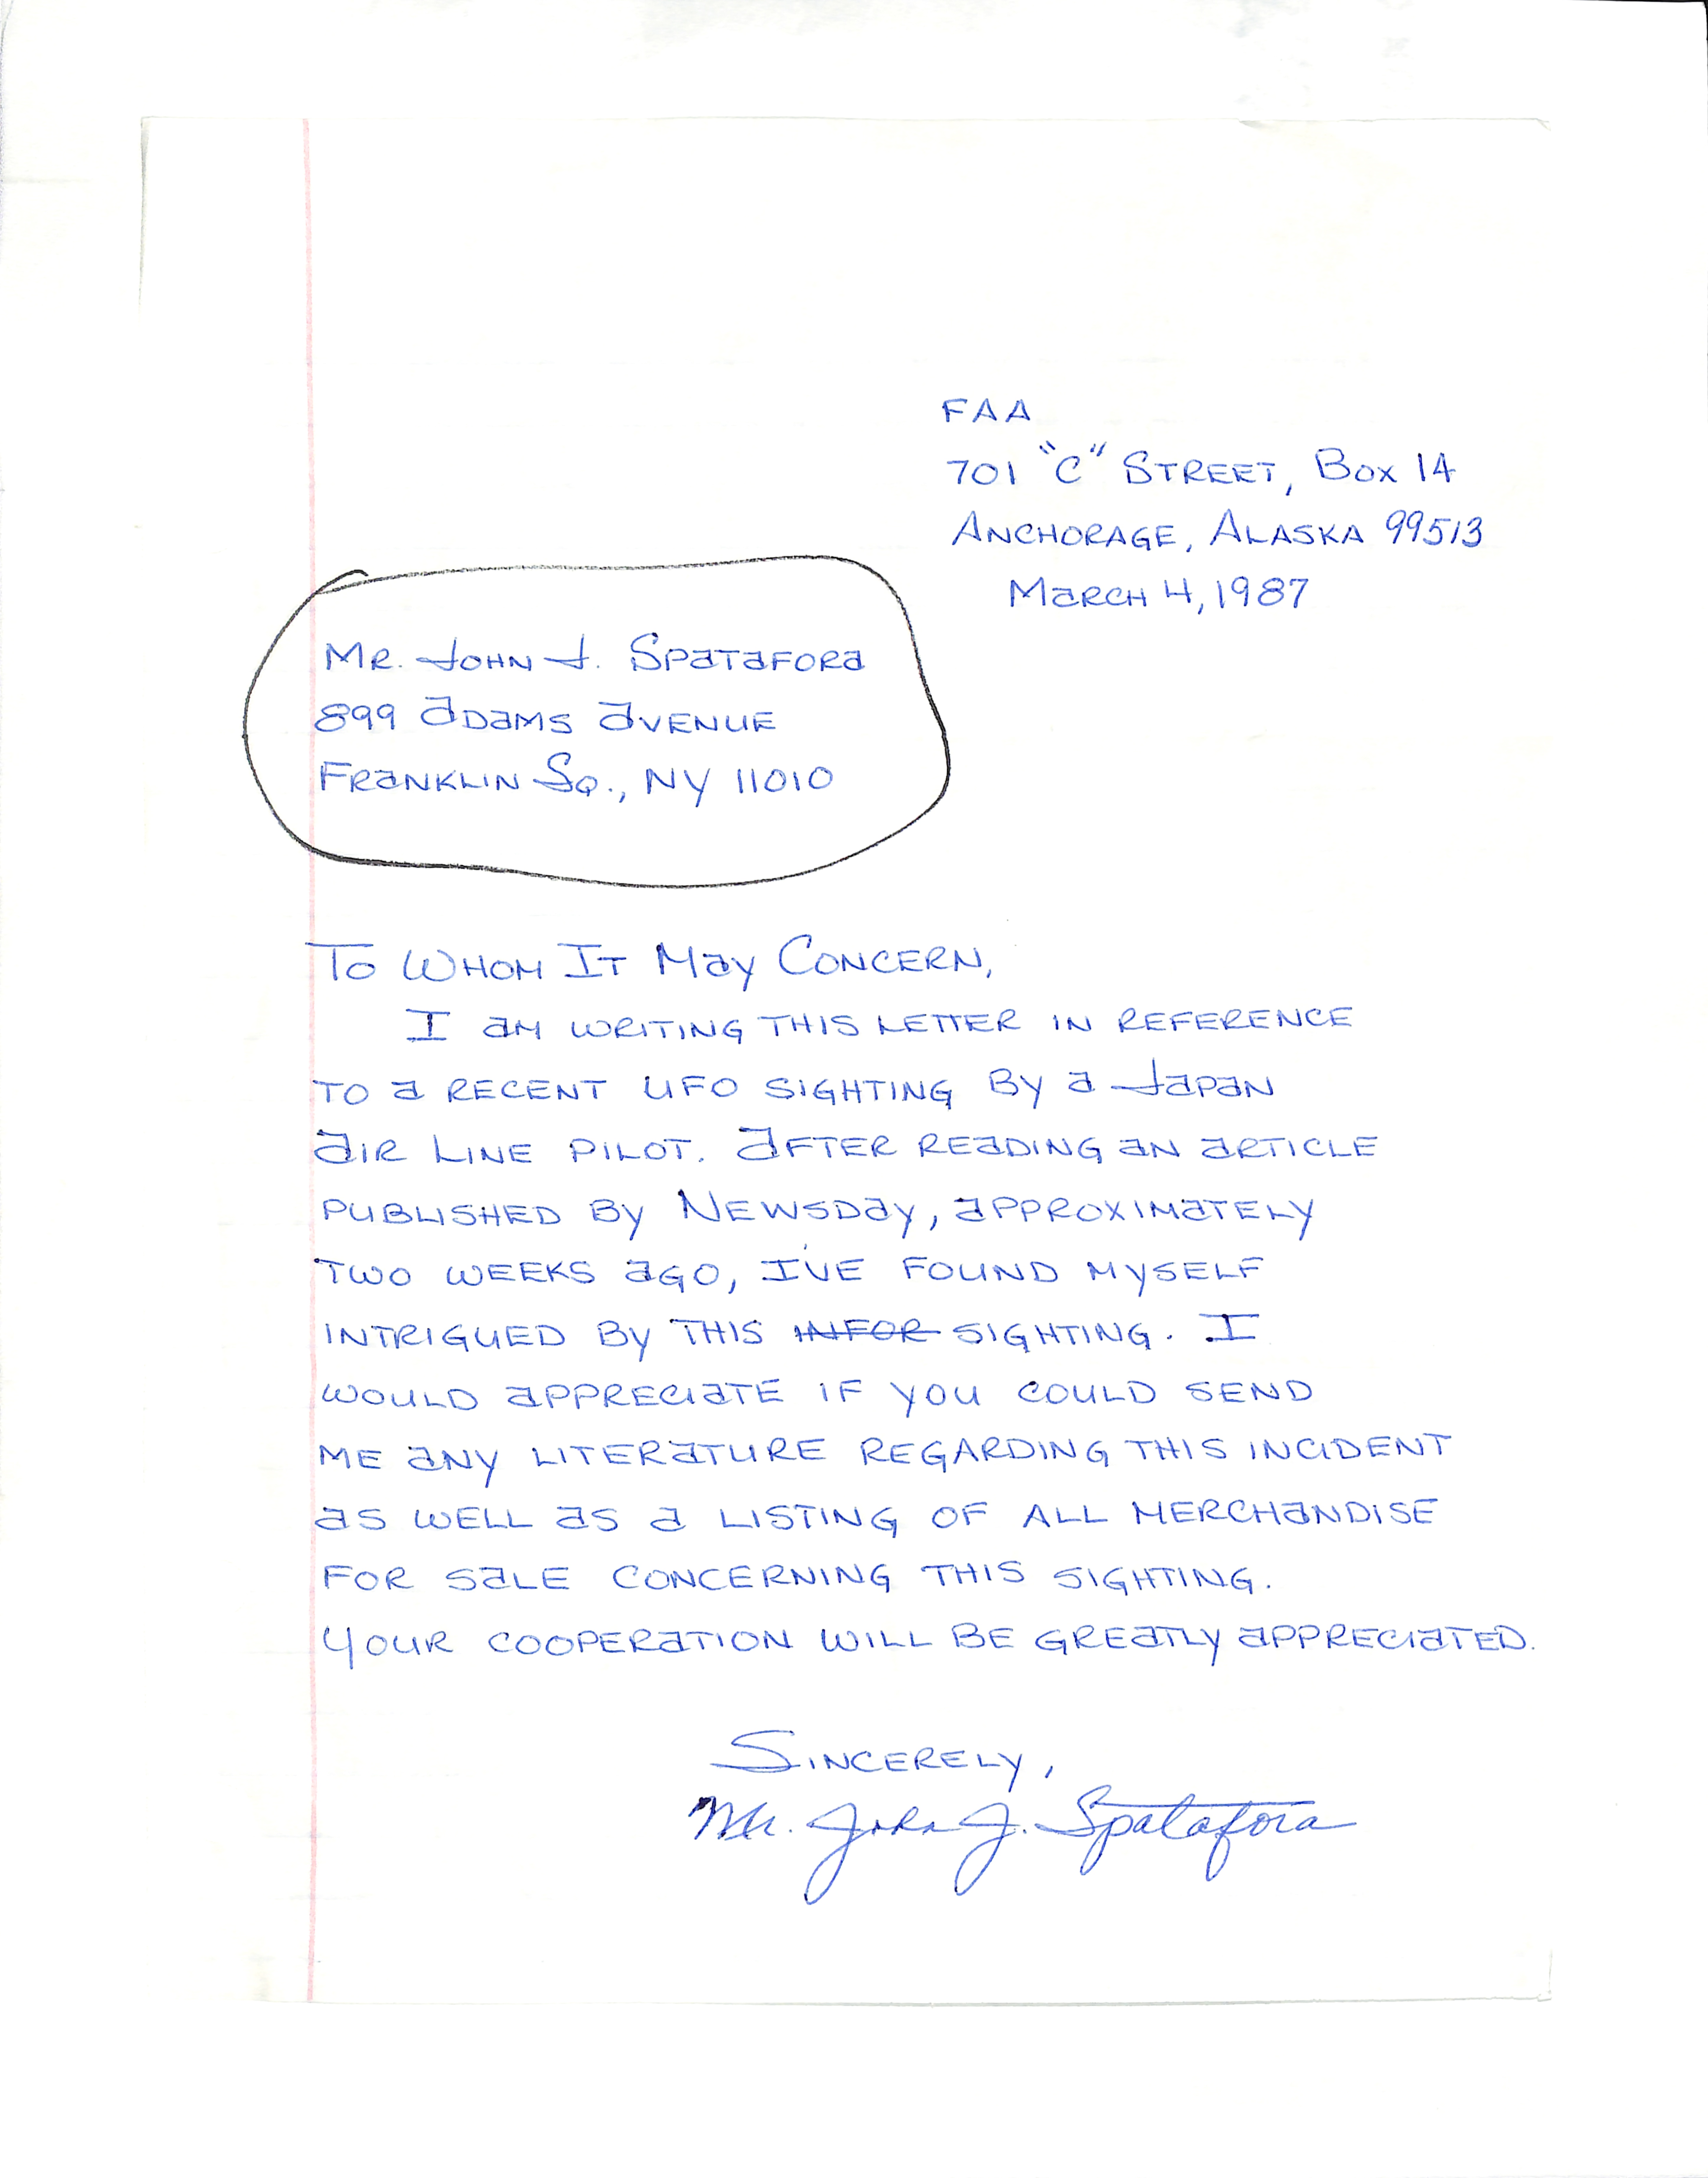 FAA
701 "C" Street, Box 14
Anchorage, Alaska 99513
March 4, 1987
Mr. John J. Spatafora
899 Adams Avenue
Franklin Sq., NY 11010
To Whom It May Concern,
I am writing this letter in reference
to a recent UFO sighting by a Japan
Air Line pilot. After reading an article
published by Newsday, approximately
two weeks ago, I've found myself
intrigued by this infor sighting. I
would appreciate if you could send
me any literature regarding this incident
as well as a listing of all merchandise
for sale concerning this sighting.
Your cooperation will be greatly appreciated.
Sincerely,
Mr. John J. Spatafora